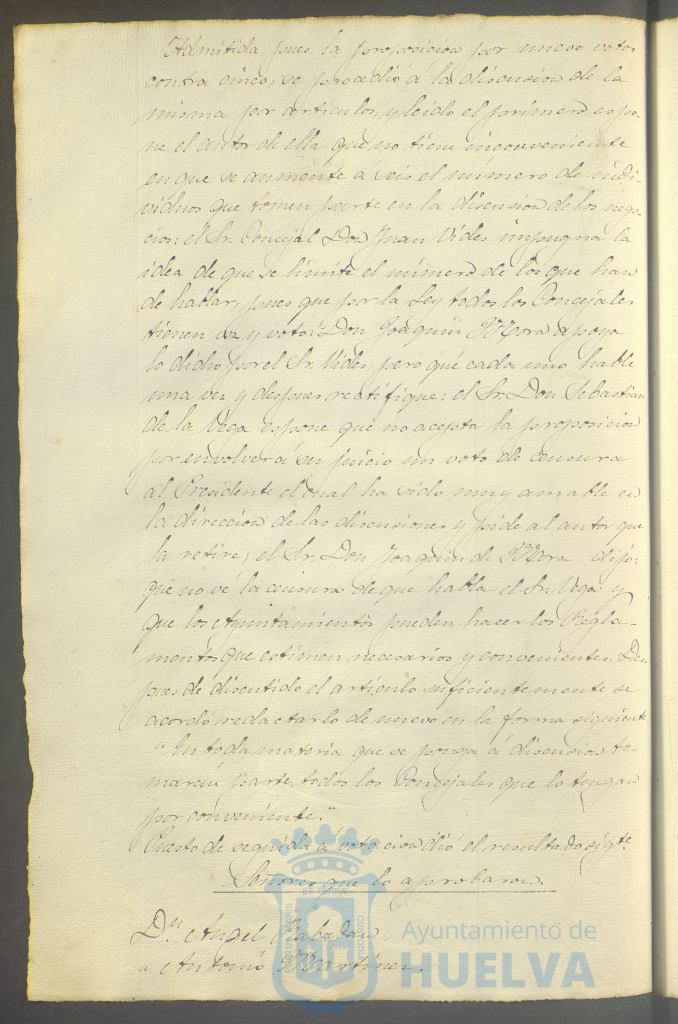 Admitida, pues, la proposicion por nueve votos
contra cinco, se procedió á la discusion de la
misma por artículos, y leido el primero espo-
ne el autor de ella que no tiene inconveniente
en que se aumente á seis el número de indi-
viduos que tomen parte en la discusion de los nego-
cios: el Sr. Concejal Don Juan Vides impugna la
idea de que se limite el número de los que han
de hablar, pues que por la Ley todos los Concejales
tienen voz y voto: Don Joaquin Mora apoya
lo dicho por el Sr. Vides, pero que cada uno hable
una vez y despues rectifique: el Sr. Don Sebastian
de la Vega espone que no acepta la proposicion
por envolver á su juicio un voto de censura
al Presidente el cual ha sido muy amable en
la direccion de las discusiones y pide al autor que
la retire; el Sr. Don Joaquin de Mora dijo:
que no vé la censura de que habla el Sr. Vega y
que los Ayuntamientos pueden hacer los Regla-
mentos que estimen necesarios y convenientes. Des-
pues de discutido el artículo suficientemente se
acordó redactarlo de nuevo en la forma siguiente
"En toda materia que se ponga á discusion to-
marán parte todos los Concejales que lo tengan
por conveniente."
Puesto de seguida á votacion dió el resultado sigte.
Señores que lo aprobaron.
Dn. Angel Rabadan,
" Antonio Martinez
Ayuntamiento de
HUELVA